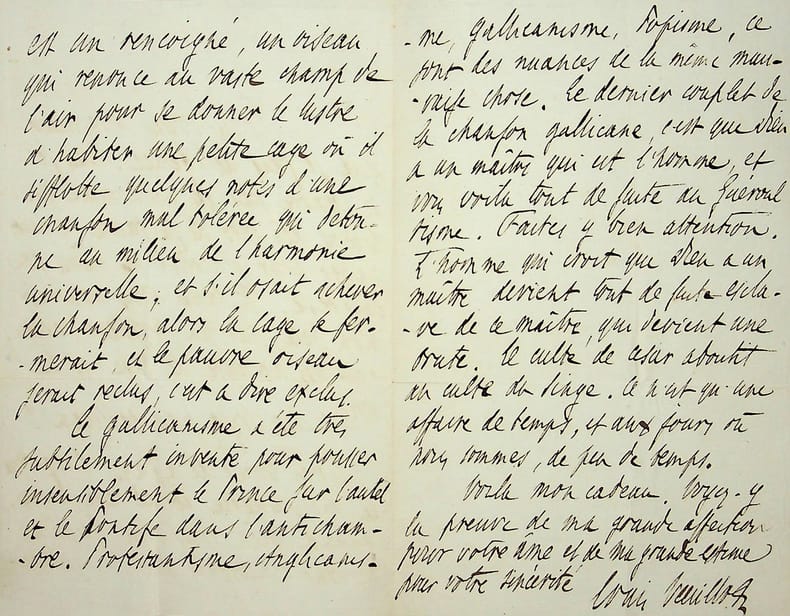 est un rencoigné, un oiseau
qui renonce au vaste champ de
l'air pour se donner le lustre
d'habiter une petite cage où il
sifflotte quelques notes d'une
chanson mal tolérée qui déton-
ne au milieu de l'harmonie
universelle; et s'il osait achever
la chanson, alors la cage se fer-
-merait, et le pauvre oiseau
serait reclus, c'est a dire exclus.
Le gallicanisme a été très
subtilement inventé pour pousser
insensiblement le Prince sur l'autel
et le Pontife dans l'anticham-
-bre. Protestantisme, Anglicanis-
-me, gallicanisme, Fopisme, ce
sont des nuances de la même mau-
-vaise chose. Le dernier couplet de
la chanson gallicane, c'est que Dieu
a un maître qui est l'homme, et
vous voilà tout de suite au Guéroul
tisme. Faites y bien attention.
L'homme qui croit que Dieu a un
maître devient tout de suite escla-
-ve de ce maître, qui devient une
brute. Le culte de césar aboutit
au culte du singe. Ce n'est qu'une
affaire de temps, et aux jours où
nous sommes, de peu de temps.
Voilà mon cadeau. Voyez-y
la preuve de ma grande affection
pour votre âme et de ma grande estime
pour votre sincérité
Louis Veuillot